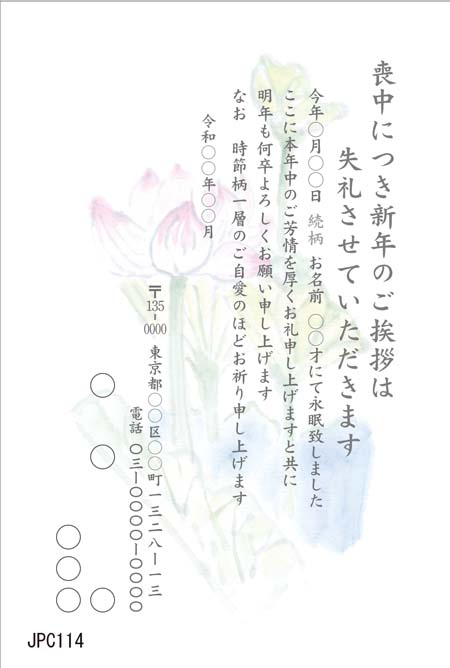 喪中につき新年のご挨拶は
失礼させていただきます
今年〇月〇〇日 続柄 お名前 〇〇才にて永眠致しました
ここに本年中のご芳情を厚くお礼申し上げますと共に
明年も何卒よろしくお願い申し上げます
なお 時節柄一層のご自愛のほどお祈り申し上げます
令和〇〇年〇〇月
〒135-0000 東京都〇〇区〇〇町一三二八ー一三
電話 〇三ー〇〇〇〇ー〇〇〇〇
〇 〇 〇
〇〇〇
JPC114